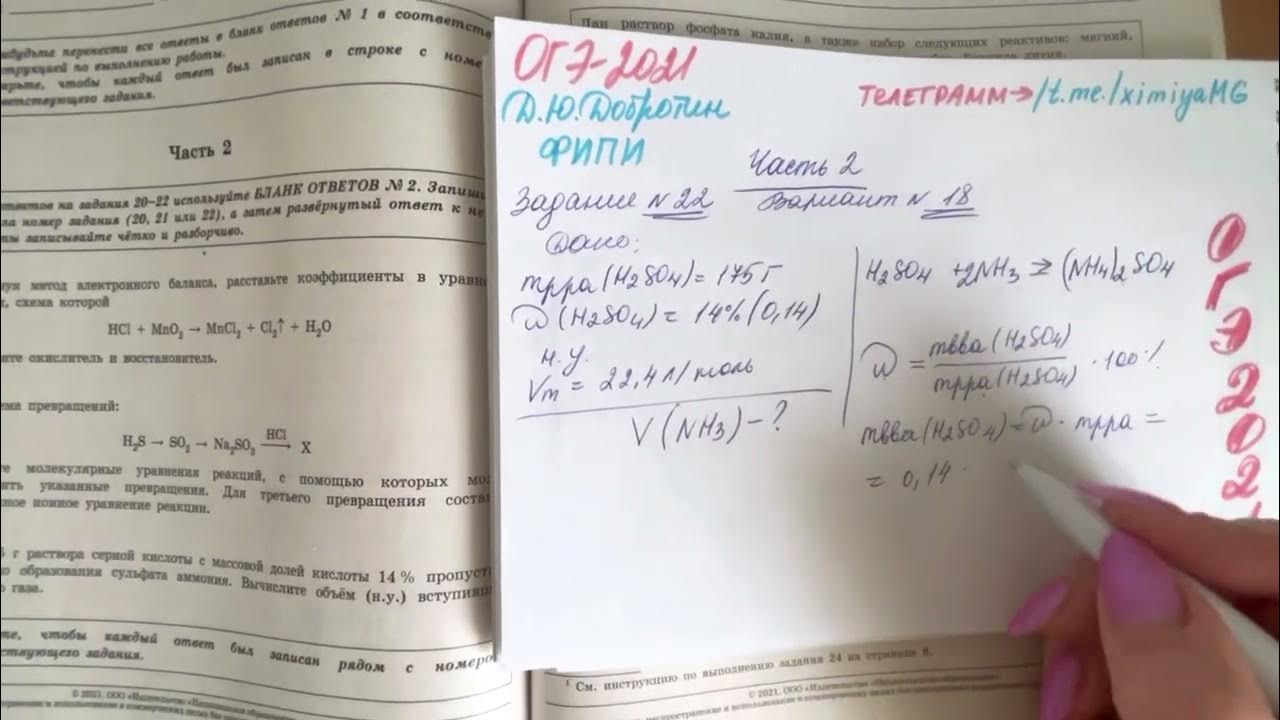 будьте перенести все ответы в бланк ответов № 1 в соответств
струкцией по выполнению работы.
чтобы каждый ответ был записан в строке с номе
ветствующего задания.
Часть 2
ответов на задания 20–22 используйте БЛАНК ОТВЕТОВ № 2. Запиши
ла номер задания (20, 21 или 22), а затем развёрнутый ответ к не
ты записывайте чётко и разборчиво.
зуя метод электронного баланса, расставьте коэффициенты в уравне
, схема которой
HCl + MnO₂ → MnCl₂ + Cl₂↑ + H₂O
ите окислитель и восстановитель.
ема превращений:
HCl
H₂S → SO₂ → Na₂SO₃ → X
е молекулярные уравнения реакций, с помощью которых мо
ить указанные превращения. Для третьего превращения соста
нное ионное уравнение реакции.
5 г раствора серной кислоты с массовой долей кислоты 14 % пропуст
о образования сульфата аммония. Вычислите объём (н.у.) вступивш
о газа.
те, чтобы каждый ответ был записан рядом с номеро
ствующего задания.
© 2021. ООО «Издательство «Национальное образование»
Дан раствор фосфата калия, а также набор следующих реактивов: магний,
ОГЭ-2021
Д.Ю.Добротин
ФИПИ
ТЕЛЕГРАММ→/t.me/ximiyaMG
Часть 2
Задание №22 Вариант № 18
Дано:
mрра(H₂SO₄)= 175г
ω(H₂SO₄)= 14% (0,14)
н.у.
Vm = 22,4 л/моль
V(NH₃)-?
H₂SO₄ +2NH₃ = (NH₄)₂SO₄
ω = mвва(H₂SO₄)
mрра(H₂SO₄) · 100%
mвва(H₂SO₄)=ω · mрра =
= 0,14 ·
ОГЭ 202
¹ См. инструкцию по выполнению задания 24 на странице 8.
© 2021. ООО «Издательство «Национальное